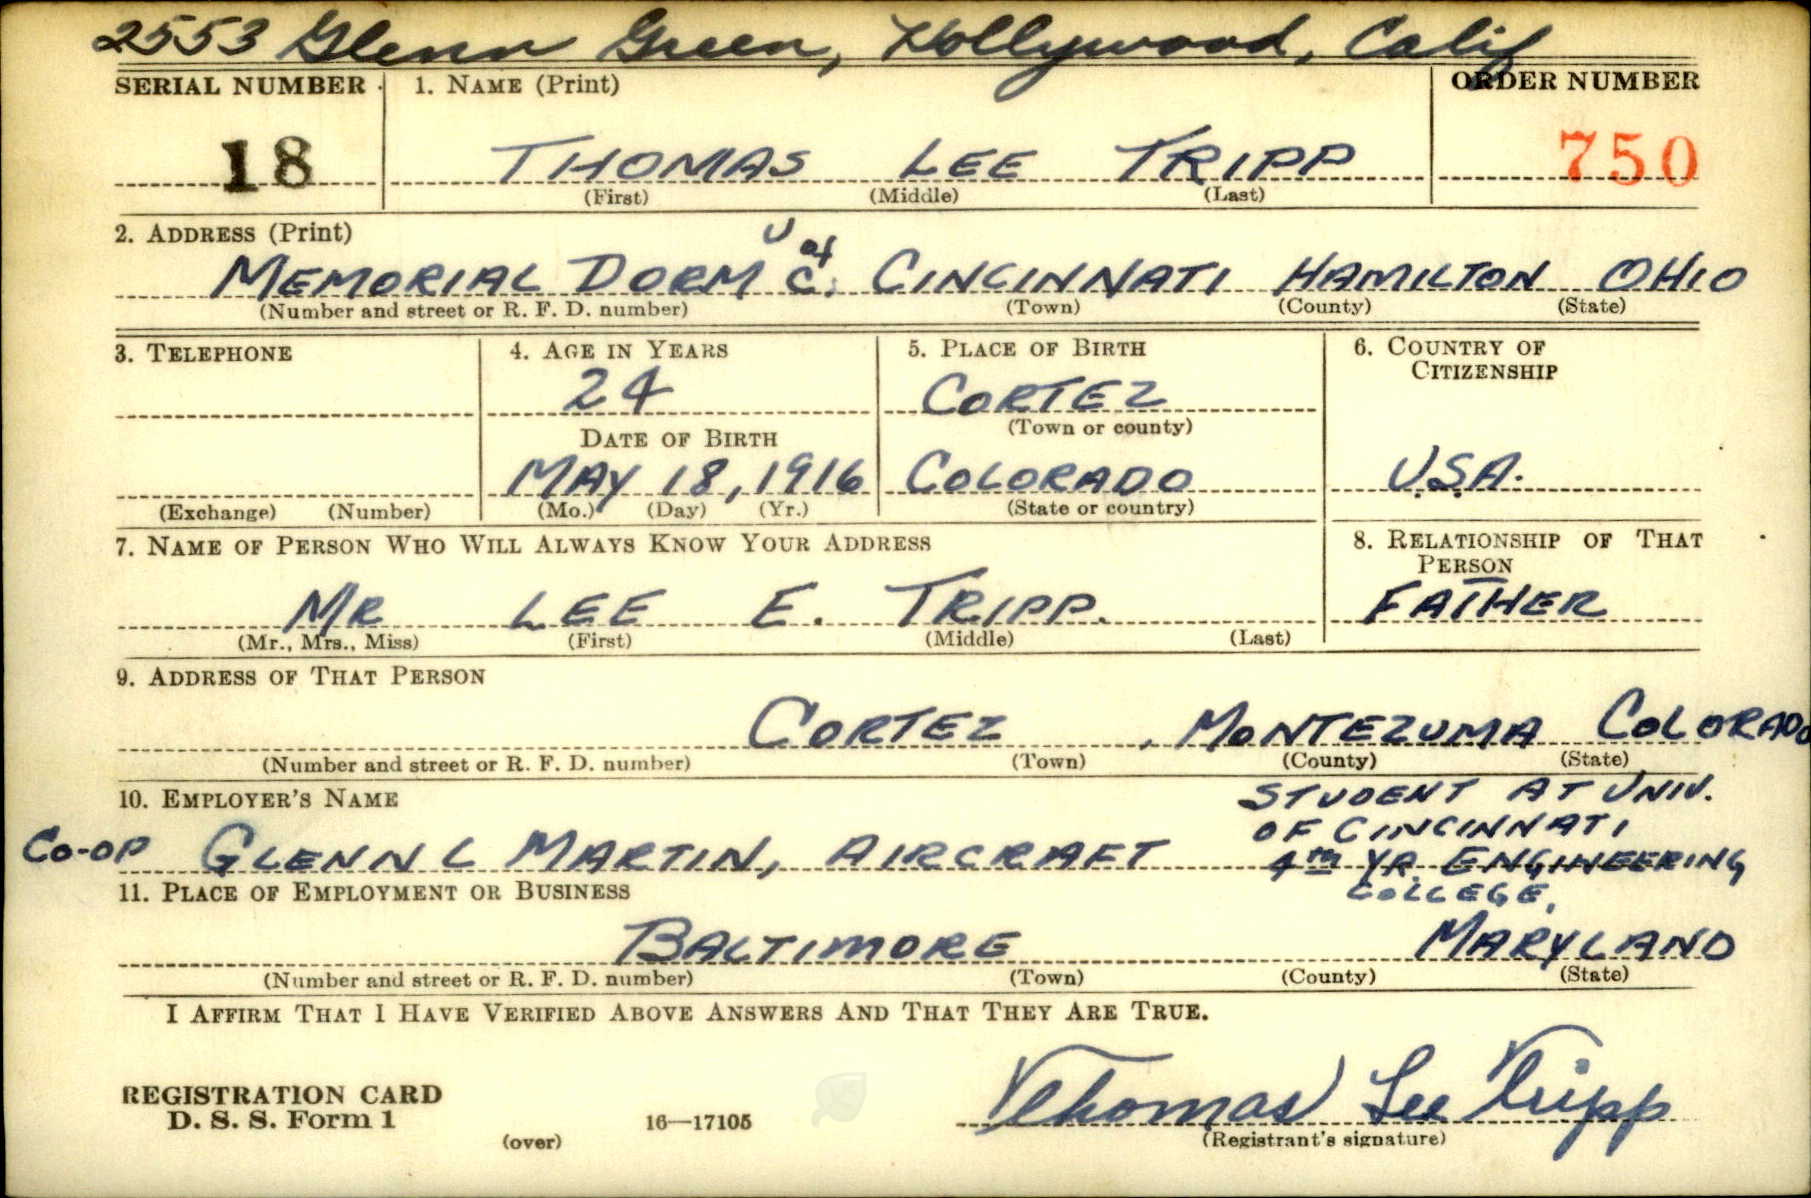 2553 Glenn Green, Hollywood, Calif
SERIAL NUMBER 1. NAME (Print) ORDER NUMBER
18 THOMAS LEE TRIPP 750
(First) (Middle) (Last)
2. ADDRESS (Print)
MEMORIAL DORM U of C. CINCINNATI HAMILTON OHIO
(Number and street or R. F. D. number) (Town) (County) (State)
3. TELEPHONE 4. AGE IN YEARS 5. PLACE OF BIRTH 6. COUNTRY OF
CITIZENSHIP
24 CORTEZ
(Town or county)
DATE OF BIRTH
MAY 18, 1916 COLORADO U.S.A.
(Exchange) (Number) (Mo.) (Day) (Yr.) (State or country)
7. NAME OF PERSON WHO WILL ALWAYS KNOW YOUR ADDRESS 8. RELATIONSHIP OF THAT
PERSON
MR LEE E. TRIPP. FATHER
(Mr., Mrs., Miss) (First) (Middle) (Last)
9. ADDRESS OF THAT PERSON
CORTEZ, MONTEZUMA COLORADO
(Number and street or R. F. D. number) (Town) (County) (State)
10. EMPLOYER'S NAME STUDENT AT UNIV.
OF CINCINNATI
CO-OP GLENN L MARTIN, AIRCRAFT 4TH YR. ENGINEERING
COLLEGE,
11. PLACE OF EMPLOYMENT OR BUSINESS
BALTIMORE MARYLAND
(Number and street or R. F. D. number) (Town) (County) (State)
I AFFIRM THAT I HAVE VERIFIED ABOVE ANSWERS AND THAT THEY ARE TRUE.
REGISTRATION CARD
D. S. S. Form 1 16—17105 Thomas Lee Tripp
(over) (Registrant's signature)